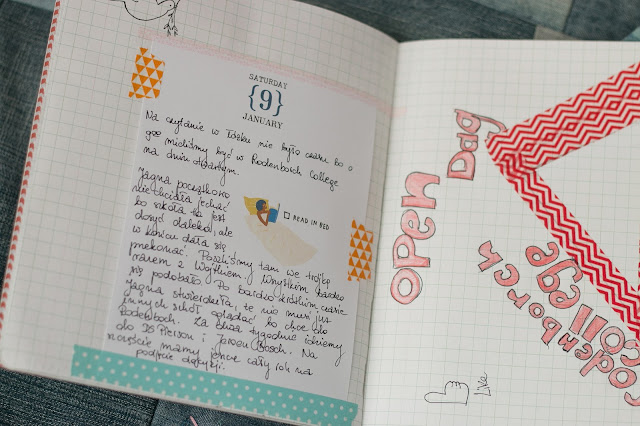 SATURDAY
{9}
JANUARY
Na czytanie w łóżku nie było czasu bo o
9⁰⁰ mieliśmy być w Rodenborch College
na dniu otwartym.
Jagna początkowo
nie chciała jechać
bo szkoła ta jest
dosyć daleko, ale
w końcu dała się
przekonać. Poszliśmy tam we trójkę
razem z Wojtkiem i wszystkim bardzo
się podobało. Po bardzo krótkim czasie
Jagna stwierdziła, że nie musi już
innych szkół oglądać bo chce do
Rodenboch. Za dwa tygodnie idziemy
do Pierson i Jeroen Bosch. Na
szczęście mamy jeszcze cały rok na
podjęcie decyzji.
READ IN BED
open Dag
Rodenborch
college